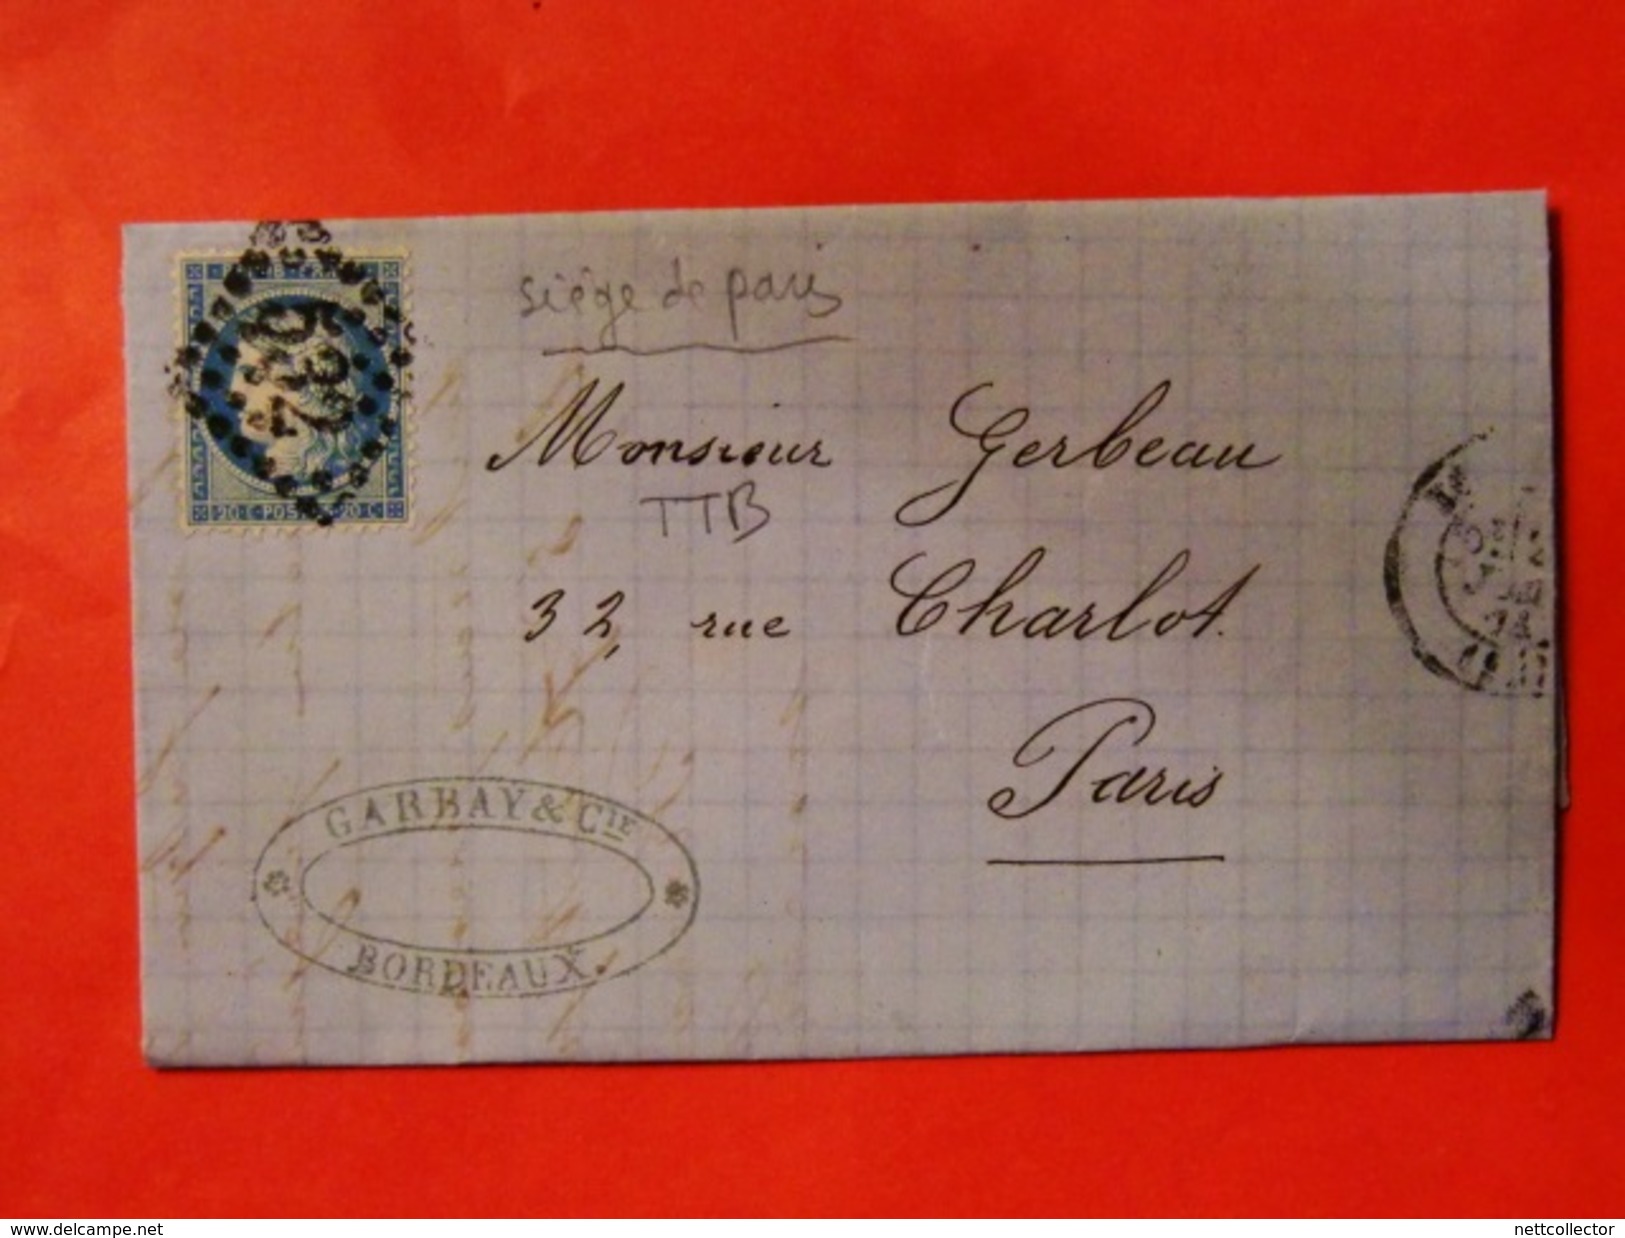 siège de paris
Monsieur Gerbeau
TTB
32, rue Charlot.
Paris
GARBAY & CIE
BORDEAUX.
20 C POSTES 20 C
delcampe.net
nettcollector